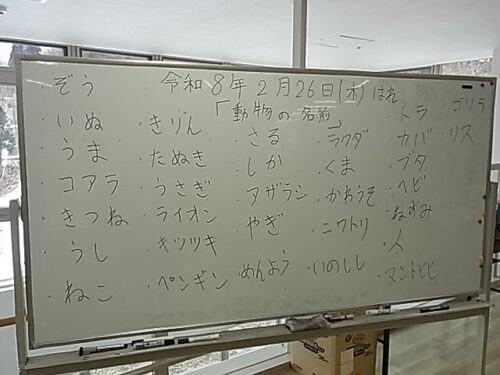 令和8年2月26日(木)はれ
「動物の名前」
ぞう
・いぬ
・うま
・コアラ
・きつね
・うし
・ねこ
・きりん
・たぬき
・うさぎ
・ライオン
・キツツキ
・ペンギン
・さる
・しか
・アザラシ
・やぎ
めんよう
・ラクダ
・くま
・かわうそ
・ニワトリ
・いのしし
・トラ
・カバ
・ブタ
・ヘビ
・ねずみ
・人
・マントヒヒ
ゴリラ
・リス